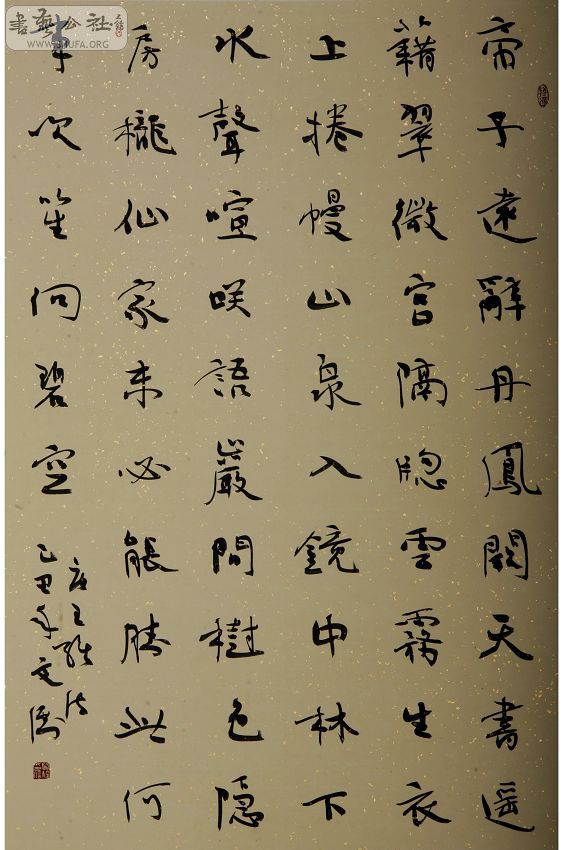 帝子遠辭丹鳳闕天書遥
籍翠微宮隔牕雲霧生衣
上捲幔山泉入鏡中林下
水聲喧咲語巖間樹色隱
房櫳仙家未必能勝此何
事吹笙向碧空
唐王維詩
己丑年文
書藝公社
WWW.SHUFA.ORG